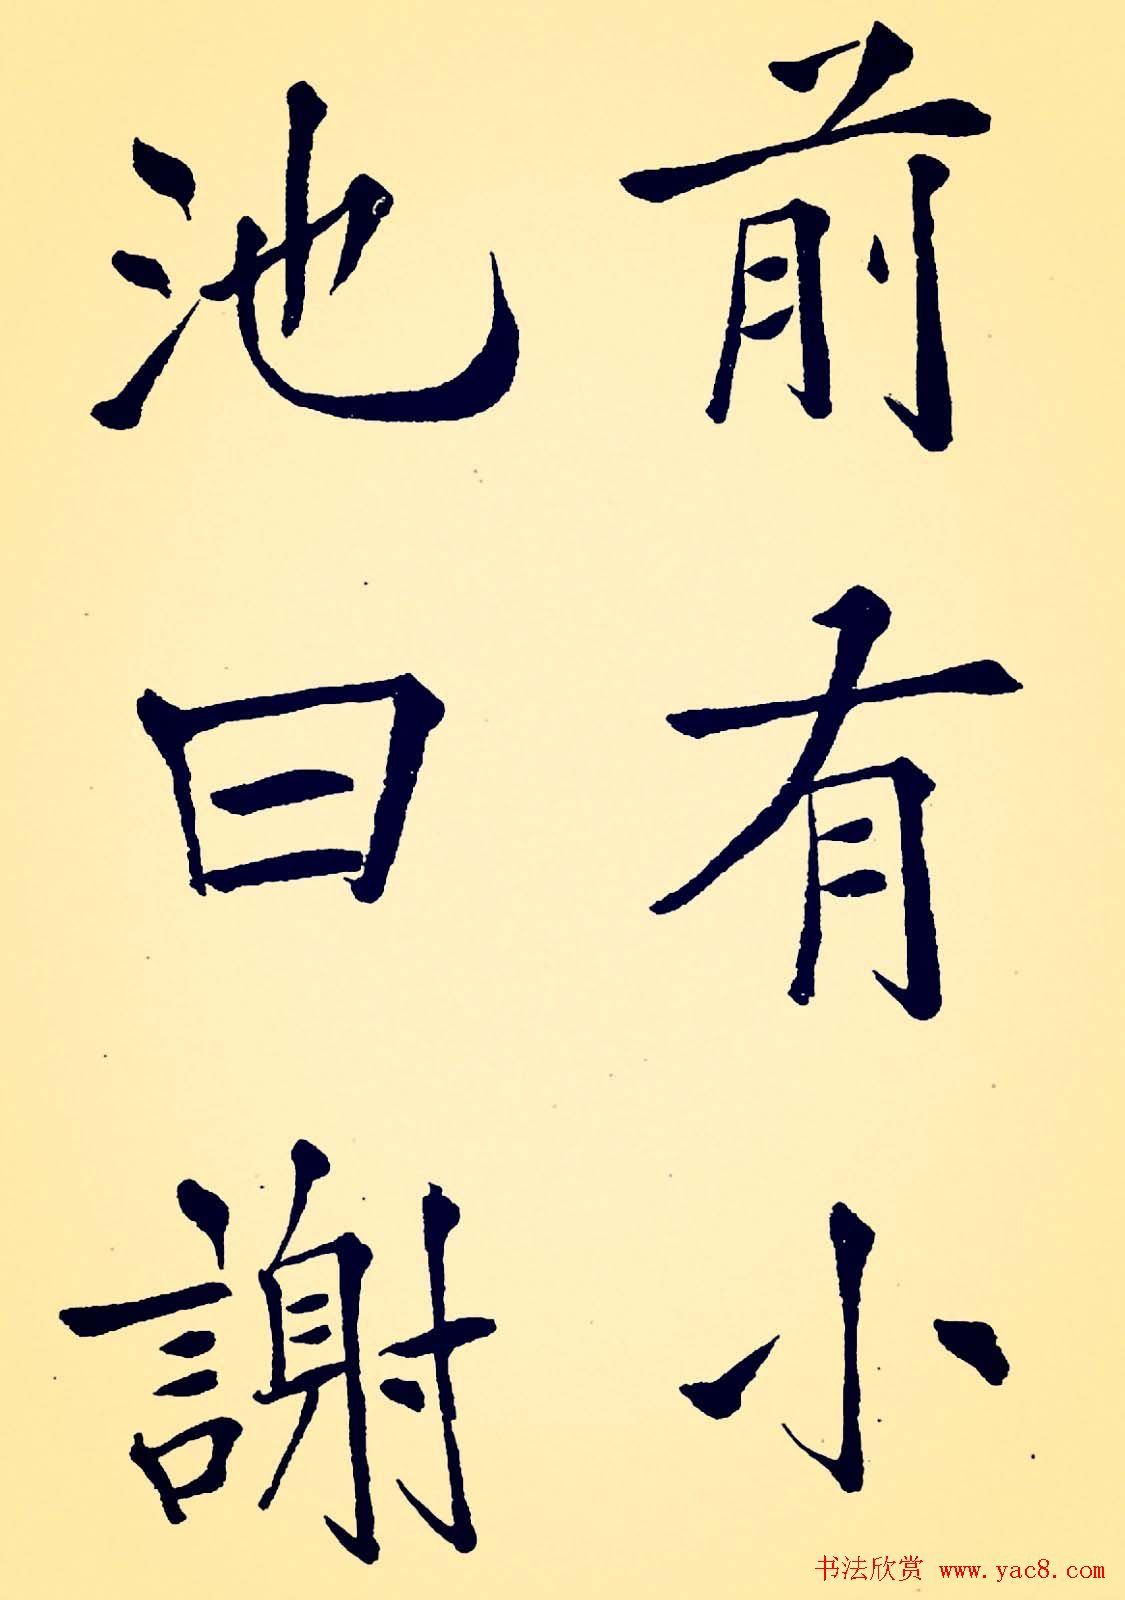 前有小
池曰謝
书法欣赏 www.yac8.com